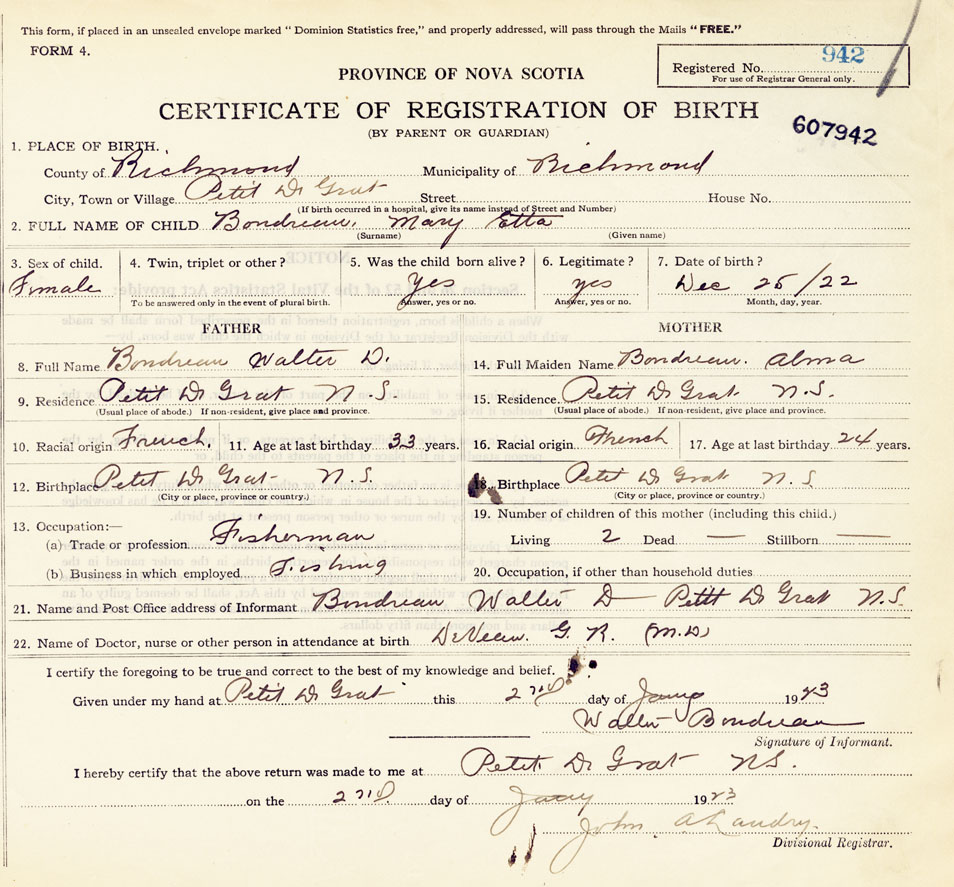 This form, if placed in an unsealed envelope marked "Dominion Statistics free," and properly addressed, will pass through the Mails "FREE."
FORM 4.
942
Registered No.
For use of Registrar General only.
PROVINCE OF NOVA SCOTIA
CERTIFICATE OF REGISTRATION OF BIRTH
(BY PARENT OR GUARDIAN)
607942
1. PLACE OF BIRTH.
County of Richmond Municipality of Richmond
City, Town or Village Petit De Grat Street House No.
(If birth occurred in a hospital, give its name instead of Street and Number)
2. FULL NAME OF CHILD Boudreau, Mary Etta
(Surname) (Given name)
3. Sex of child. 4. Twin, triplet or other? 5. Was the child born alive? 6. Legitimate? 7. Date of birth?
Female Yes yes Dec 26/22
To be answered only in the event of plural birth. Answer, yes or no. Answer, yes or no. Month, day, year.
FATHER MOTHER
8. Full Name Boudreau Walter D. 14. Full Maiden Name Boudreau. Alma
9. Residence Petit De Grat N.S. 15. Residence. Petit De Grat N.S.
(Usual place of abode.) If non-resident, give place and province. (Usual place of abode.) If non-resident, give place and province.
10. Racial origin French. 11. Age at last birthday 33 years. 16. Racial origin French 17. Age at last birthday 24 years.
12. Birthplace Petit De Grat N.S. 18. Birthplace Petit De Grat N.S.
(City or place, province or country.) (City or place, province or country.)
13. Occupation:— 19. Number of children of this mother (including this child.)
(a) Trade or profession Fisherman Living 2 Dead — Stillborn —
(b) Business in which employed Fishing 20. Occupation, if other than household duties
21. Name and Post Office address of Informant Boudreau Walter D — Petit De Grat N.S.
22. Name of Doctor, nurse or other person in attendance at birth DeVeau. G. R. (M.D)
I certify the foregoing to be true and correct to the best of my knowledge and belief.
Given under my hand at Petit De Grat this 2nd day of Jany 1923
Walter Boudreau
Signature of Informant.
I hereby certify that the above return was made to me at Petit De Grat NS.
on the 2nd. day of Jany 1923
John A Landry.
Divisional Registrar.